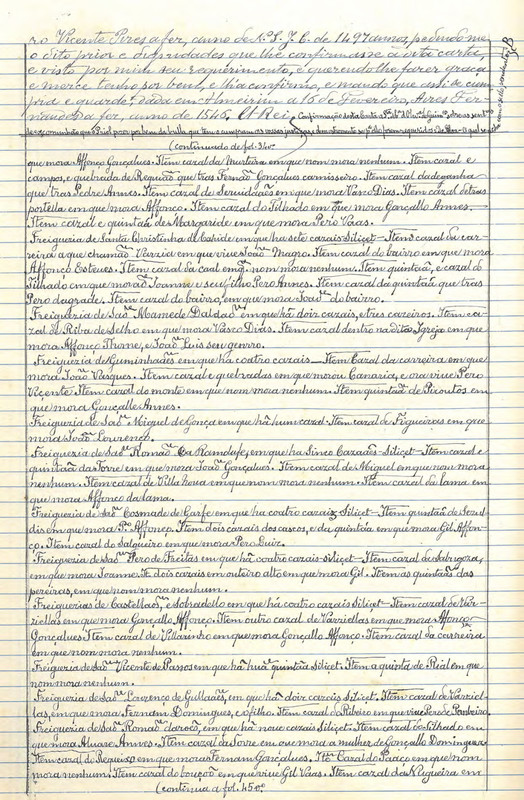 ro Vicente Pires a fez, anno de N. S. J. C. de 1497 annos, pedindo me
o dito prior e dignidades que lhe confirmasse a dita carta,
e visto por mim seu requerimento, e querendo lhe fazer graça
e merce tenho por bem, e lha confirmo, e mando que assi se cum
pra e guarde. Dada em Almeirim a 16 de Fevereiro, Aires Fer-
nandes a fez, anno de 1545. El Rei.
(continuado de fol. 34vº
que mora Affonço Gonçalves. Item cazal da Morteira em que nom mora nenhum. Item cazal e
campos, e quebrada de Requião que tras Fernão Gonçalves carniseiro. Item cazal da ganha
que tras Pedre Annes. Item cazal de Sernidaçãos em que mora Vasco Dias. Item cazal detras
portella em que mora Affonço. Item cazal do Tilhado em que mora Gonçallo Annes.
Item cazal e quintaã de Margaride em que mora Pero Vaas.
Freigueria de Santa Christinha d'Cahide em que ha sete cazais Siliçet - Item cazal da car
reira a que chamão Varziel em que vive João Magno. Item cazal do bairro em que mora
Affonço Esteves. Item cazal da caal em q. nom mora nenhum. Item quintaã, e cazal do
Tilhado em que morão Joanne e seu filho Pero Annes. Item cazal da quintaã que tras
Pero da grade. Item cazal do bairro, em que mora João do bairro.
Freigueria de São Mamede Daldão em que há doiz cazais, e tres careiros. Item ca
zal de Riba de Selho em que mora Vasco Dias. Item cazal dentro na dita Igreja em que
mora Affonço Thome, e João Luis seu genrro.
Freigueria de Guminhaães em que há coatro cazais - Item Cazal da carreira em que
mora João Vasques. Item cazal e quebradas em que morou Canaria, e ora vive Pero
Vicente. Item cazal do monte em que nom mora nenhum. Item quintaã de Piroutos em
que mora Gonçalle Annes.
Freigueria de São Miguel de Gonça em que há hum cazal - Item cazal de Figueiras em que
mora João Lourenço.
Freigueria de São Romão da Ramolufe, em que ha Sinco Cazaães - Siliçet - Item cazal e
quintaã da Torre em que mora João Gonçalves. Item cazal de Miguel em que nom mora
nenhum. Item cazal de Villa Nova em que nom mora nenhum. Item cazal da lama em
que mora Affonço da lama.
Freigueria de São Cosmade de Garfe em que ha coatro cazaiz Siliçet - Item quintaã de Sen
dis em que mora Pº Affonço. Item dois cazais dos cascos, e da quintaã em que mora Gil Affon-
ço. Item cazal do Salgueiro em que mora Pero Luiz.
Freigueria de São Pero de Freitas em que há coatro cazais - siliçet - Item cazal
em que mora Joanne. It. dois cazais em outeiro alto em que mora Gil. Item as quintaãs das
pereiras, em que nom mora nenhum.
Freiguerias de Castellaõs, e Sobradello em que há coatro cazais Siliçet - Item cazal de Var-
riellas em que mora Gonçallo Affonço. Item outro cazal de Varziellas em que mora Affonço
Gonçalves. Item cazal de Vellarinho em que mora Gonçallo Affonço. Item cazal da carreira
em que nom mora nenhum.
Freigueria de São Vicente de Passos em que há huã quintaã Siliçet. Item a quinta de Rial em que
nom mora nenhum.
Freigueria de São Lourenço de Gullaães, em que há doiz cazais Siliçet. Item cazal de Varziel
las, em que mora Fernam Domingues, e o filho. Item cazal do Ribeiro em que vive Pero de Ponteiro.
Freigueria de São Romão darões, em que há nove cazais Siliçet. Item cazal do Silhado em
que mora Alvare Annes. Item cazal da Torre em que mora a mulher de Gonçallo Domingues.
Item cazal de Requeixo em que mora Fernam Gonçalves. Item Cazal do Paaço em que nom
mora nenhum. Item cazal do bouçoo em que vive Gil Vaas. Item cazal da Nugueira em
(continua a fol. 45vº